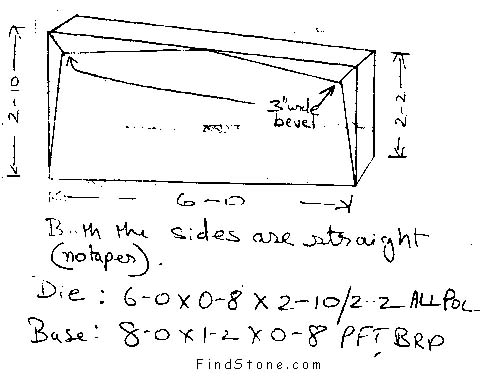 2-10
3"wide
bevel
2-2
6-0
Both the sides are straight
(no taper).
Die : 6-0 x 0-8 x 2-10/2-2 ALL POL
Base: 8-0 x 1-2 x 0-8 PFT BRP
FindStone.com